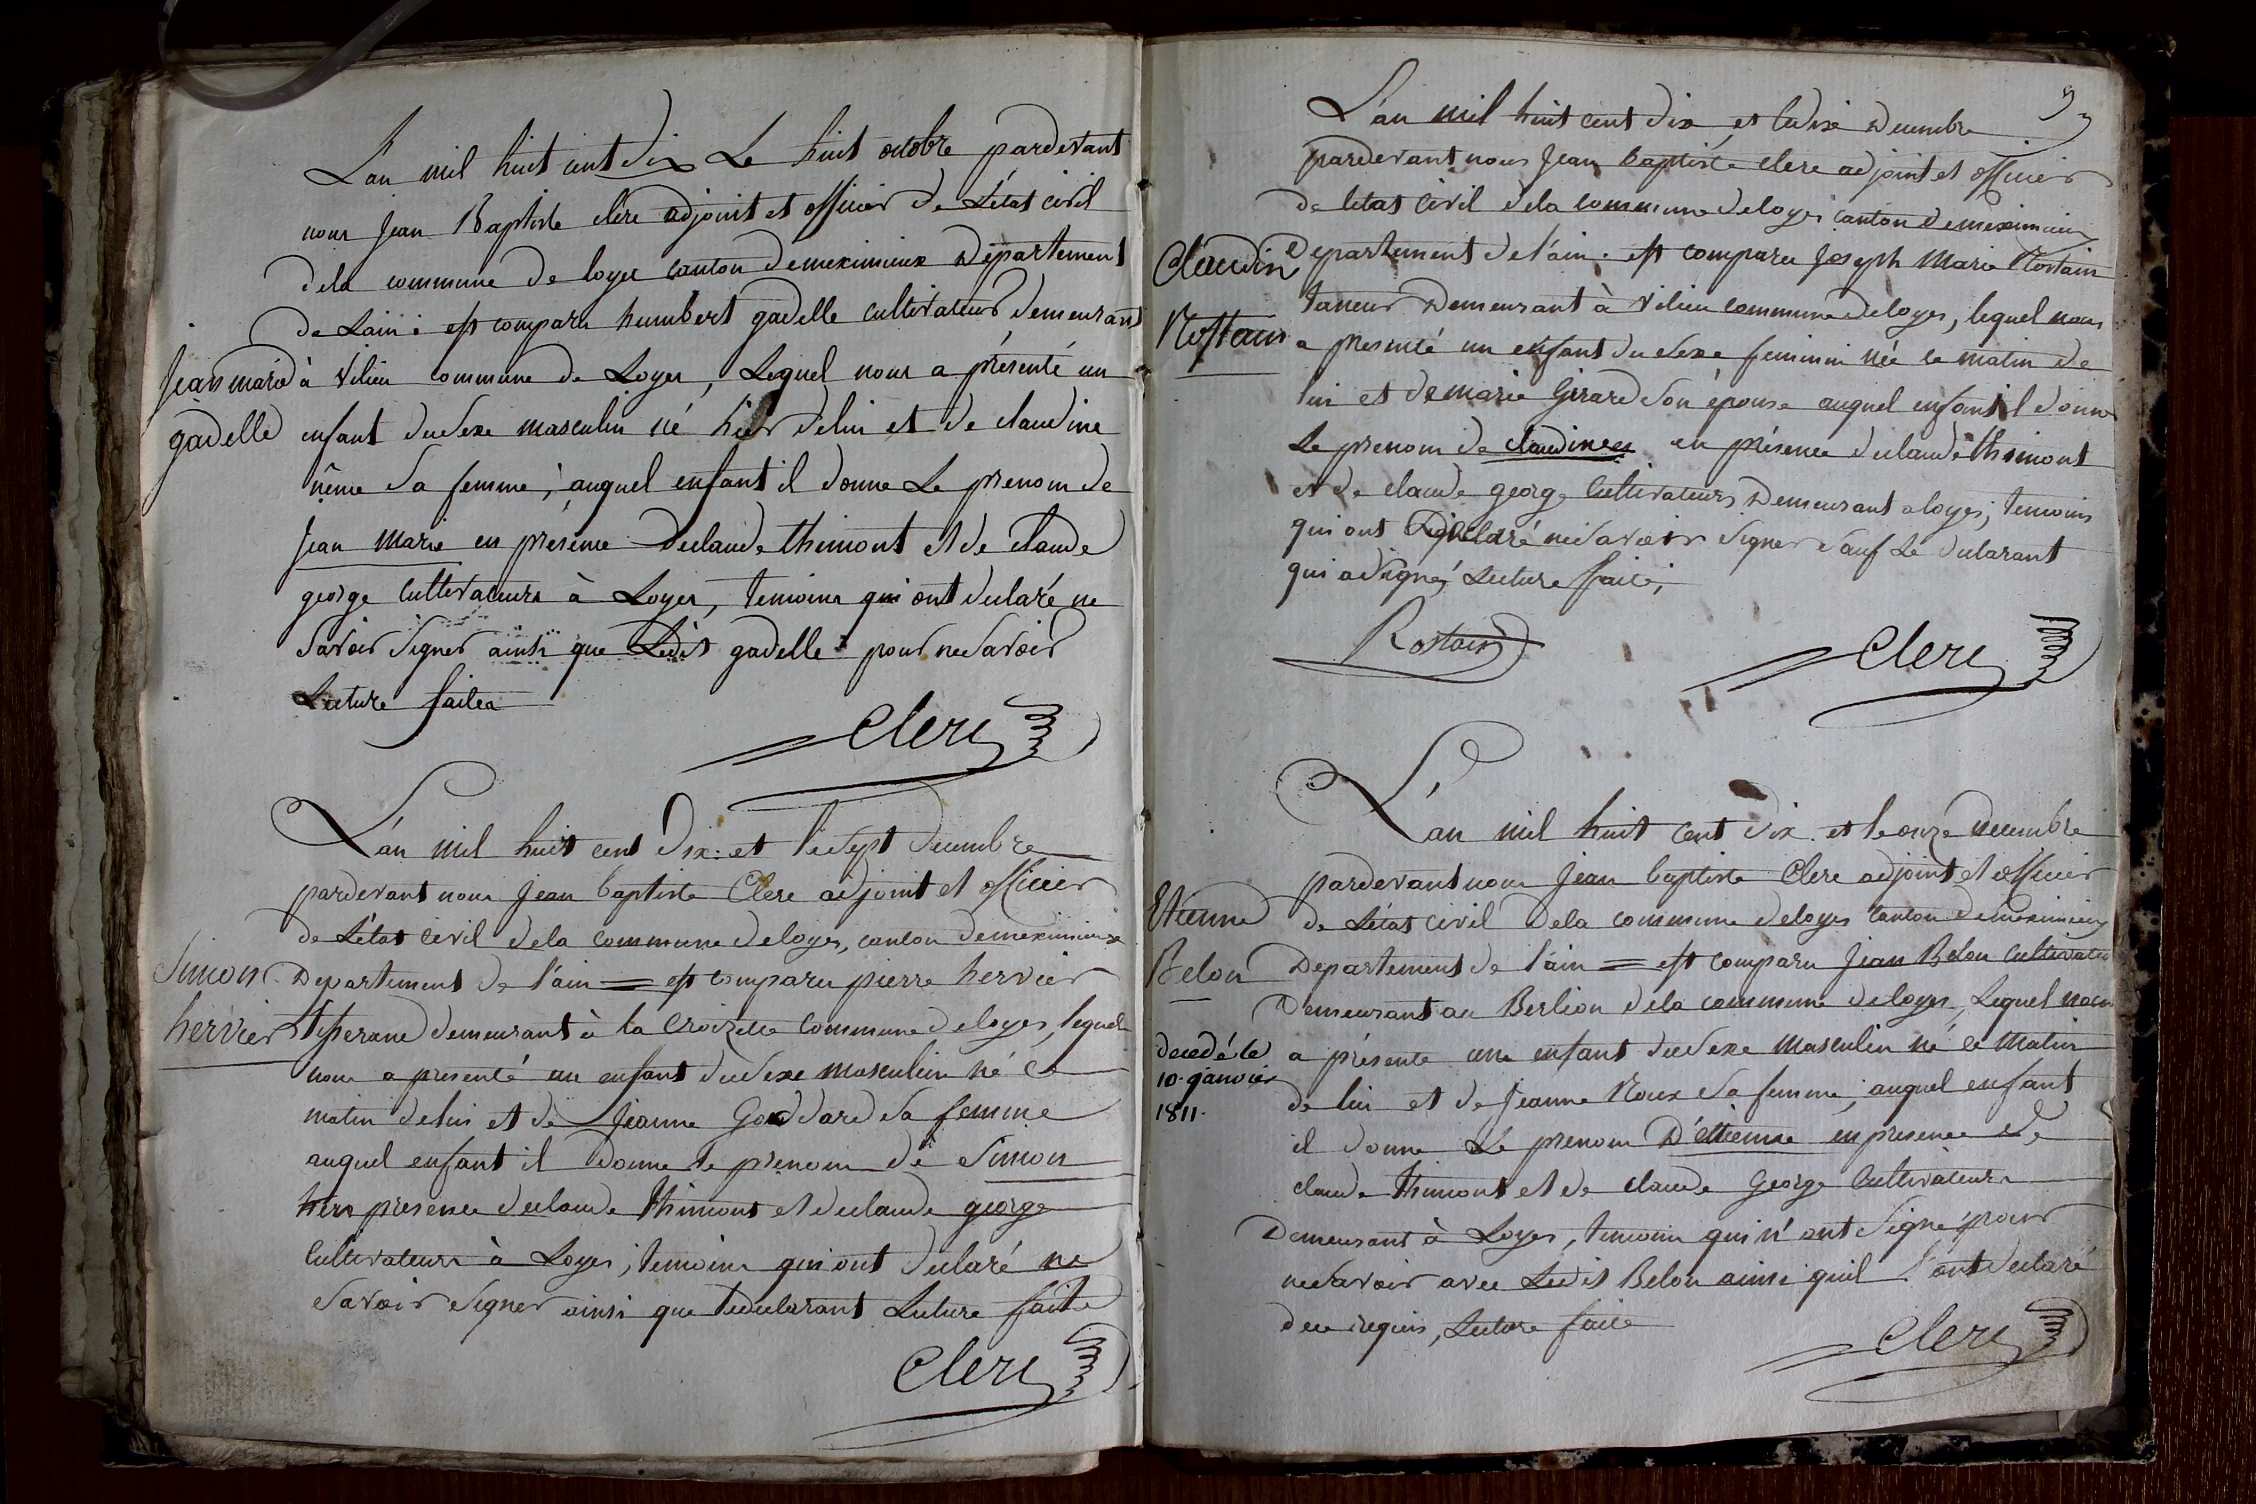 L'an mil huit cent dix Le huit octobre pardevant
nous Jean Baptiste clerc adjoint et officier de L'état civil
dela commune de loyes canton de meximieux Département
de Lain : est comparu humbert gadelle cultivateur demeurant
Jean marie
gadelle
à vilieu commune de Loyes, Lequel nous a présenté un
enfant du sexe masculin né hier delui et de claudine
même sa femme ; auquel enfant il donne Le prenom de
Jean marie en présence de claude thimont et de claude
george cultivateurs à Loyes, temoins qui ont declaré ne
savoir signer ainsi que Ledit gadelle pour ne savoir
Lecture faite
Clerc
L'an mil huit cent dix : et le sept decembre
pardevant nous Jean baptiste Clerc adjoint et officier
de L'état civil dela commune deloyes, canton de meximieux
Simon
hervier
Departement de l'ain = est comparu pierre hervier
demeurant à la Croizette commune deloyes, lequel
nous a presenté un enfant du sexe masculin né ce
matin de lui et de Jeanne Goddard sa femme
auquel enfant il donne le prenom de Simon
presence de claude thimont et de claude george
cultivateurs à Loyes ; temoins qui ont declaré ne
savoir signer ainsi que le declarant Lecture faite
Clerc
L'an mil huit cent dix et le dix decembre
pardevant nous Jean baptiste clerc adjoint et officier
de létat civil dela commune deloyes canton de meximieux
Claudine
Rostain
Departement de l'ain. est comparu Joseph Marie Rostain
taneur Demeurant à vilieu commune deloyes, lequel nous
a presenté un enfant du sexe feminin née ce matin de
lui et de marie Girard son épouse auquel enfant il donne
Le prenom de claudine en présence de claude thimont
et de claude george cultivateurs Demeurant a loyes ; temoins
qui ont declaré ne savoir signer sauf Le declarant
qui a signé, Lecture faite ;
Rostain
Clerc
L'an mil huit cent dix et le onze decembre
pardevant nous Jean baptiste Clerc adjoint et officier
de L'état civil dela commune deloyes canton de meximieux
Etienne
Belon
decedé le
10 janvier
1811.
Departement de l'ain = est comparu Jean Belon cultivateur
Demeurant au Berlion dela commune deloyes, Lequel nous
a présenté un enfant du sexe masculin né ce matin
de lui et de Jeanne Roux sa femme ; auquel enfant
il donne Le prenom D'étienne en presence de
claude thimont et de claude George cultivateurs
Demeurant à Loyes, temoins qui n'ont signé pour
ne savoir avec Ledit Belon ainsi quil l'ont declaré
de ce requis, Lecture faite
Clerc